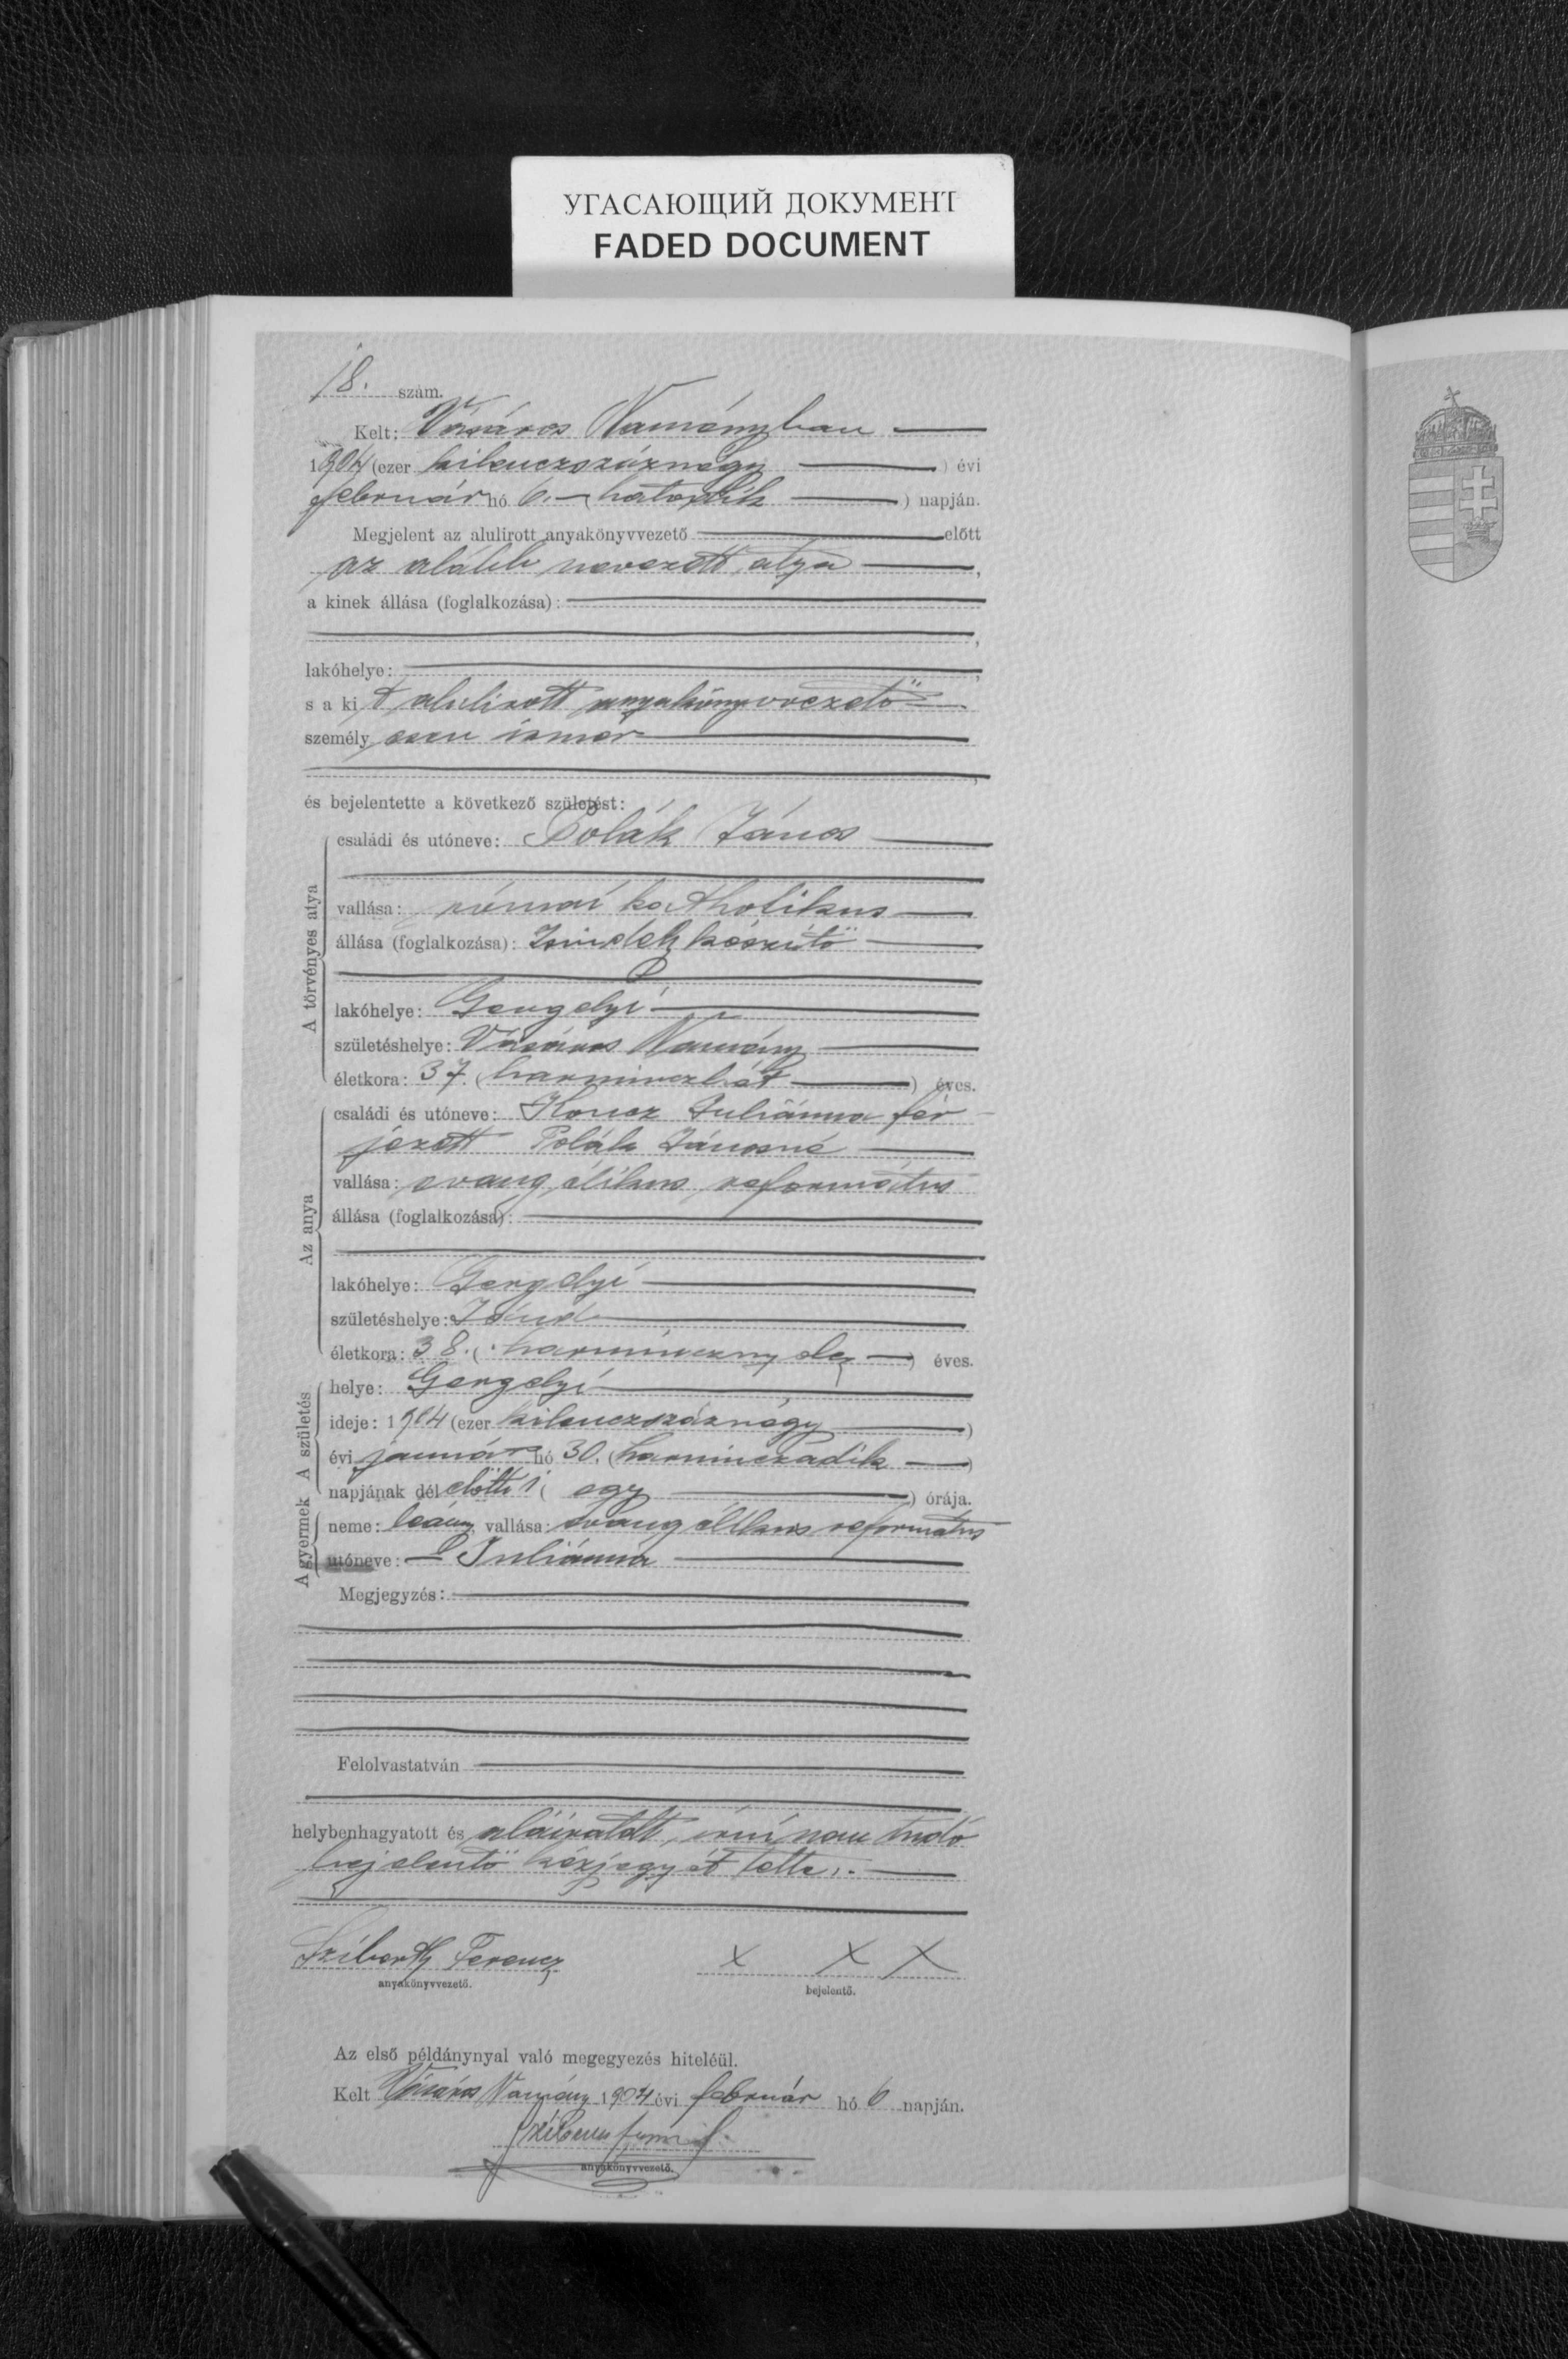 УГАСАЮЩИЙ ДОКУМЕНТ
FADED DOCUMENT
18. szám.
Kelt: Vásáros Naményban
1904 (ezer kilenczszáznégy) évi
február hó 6. (hatodik) napján.
Megjelent az alulirott anyakönyvvezető előtt
az alább nevezett atya,
a kinek állása (foglalkozása):
lakóhelye:
s a kit alulirott anyakönyvvezető
személyesen ismer
és bejelentette a következő születést:
A törvényes atya
családi és utóneve: Polák János
vallása: római katholikus
állása (foglalkozása): Zsindely készitő
lakóhelye: Gergelyi
születéshelye: Vásáros Namény
életkora: 37. (harminczhét) éves.
Az anya
családi és utóneve: Koncz Juliánna fér
jezett Polák Jánosné
vallása: evangélikus református
állása (foglalkozása):
lakóhelye: Gergelyi
születéshelye: Jánd
életkora: 38. (harmincznyolcz) éves.
A születés
helye: Gergelyi
ideje: 1904 (ezer kilenczszáznégy)
évi január hó 30. (harminczadik)
napjának dél előtti 1 (egy) órája.
A gyermek
neme: leány vallása: evangélikus református
utóneve: Juliánna
Megjegyzés:
Felolvastatván
helybenhagyatott és aláiratott, irni nem tudó
bejelentő kézjegyét tette.
Sziberth Ferencz x x x
anyakönyvvezető. bejelentő.
Az első példánynyal való megegyezés hiteléül.
Kelt Vásáros Namény 1904 évi február hó 6 napján.
anyakönyvvezető.